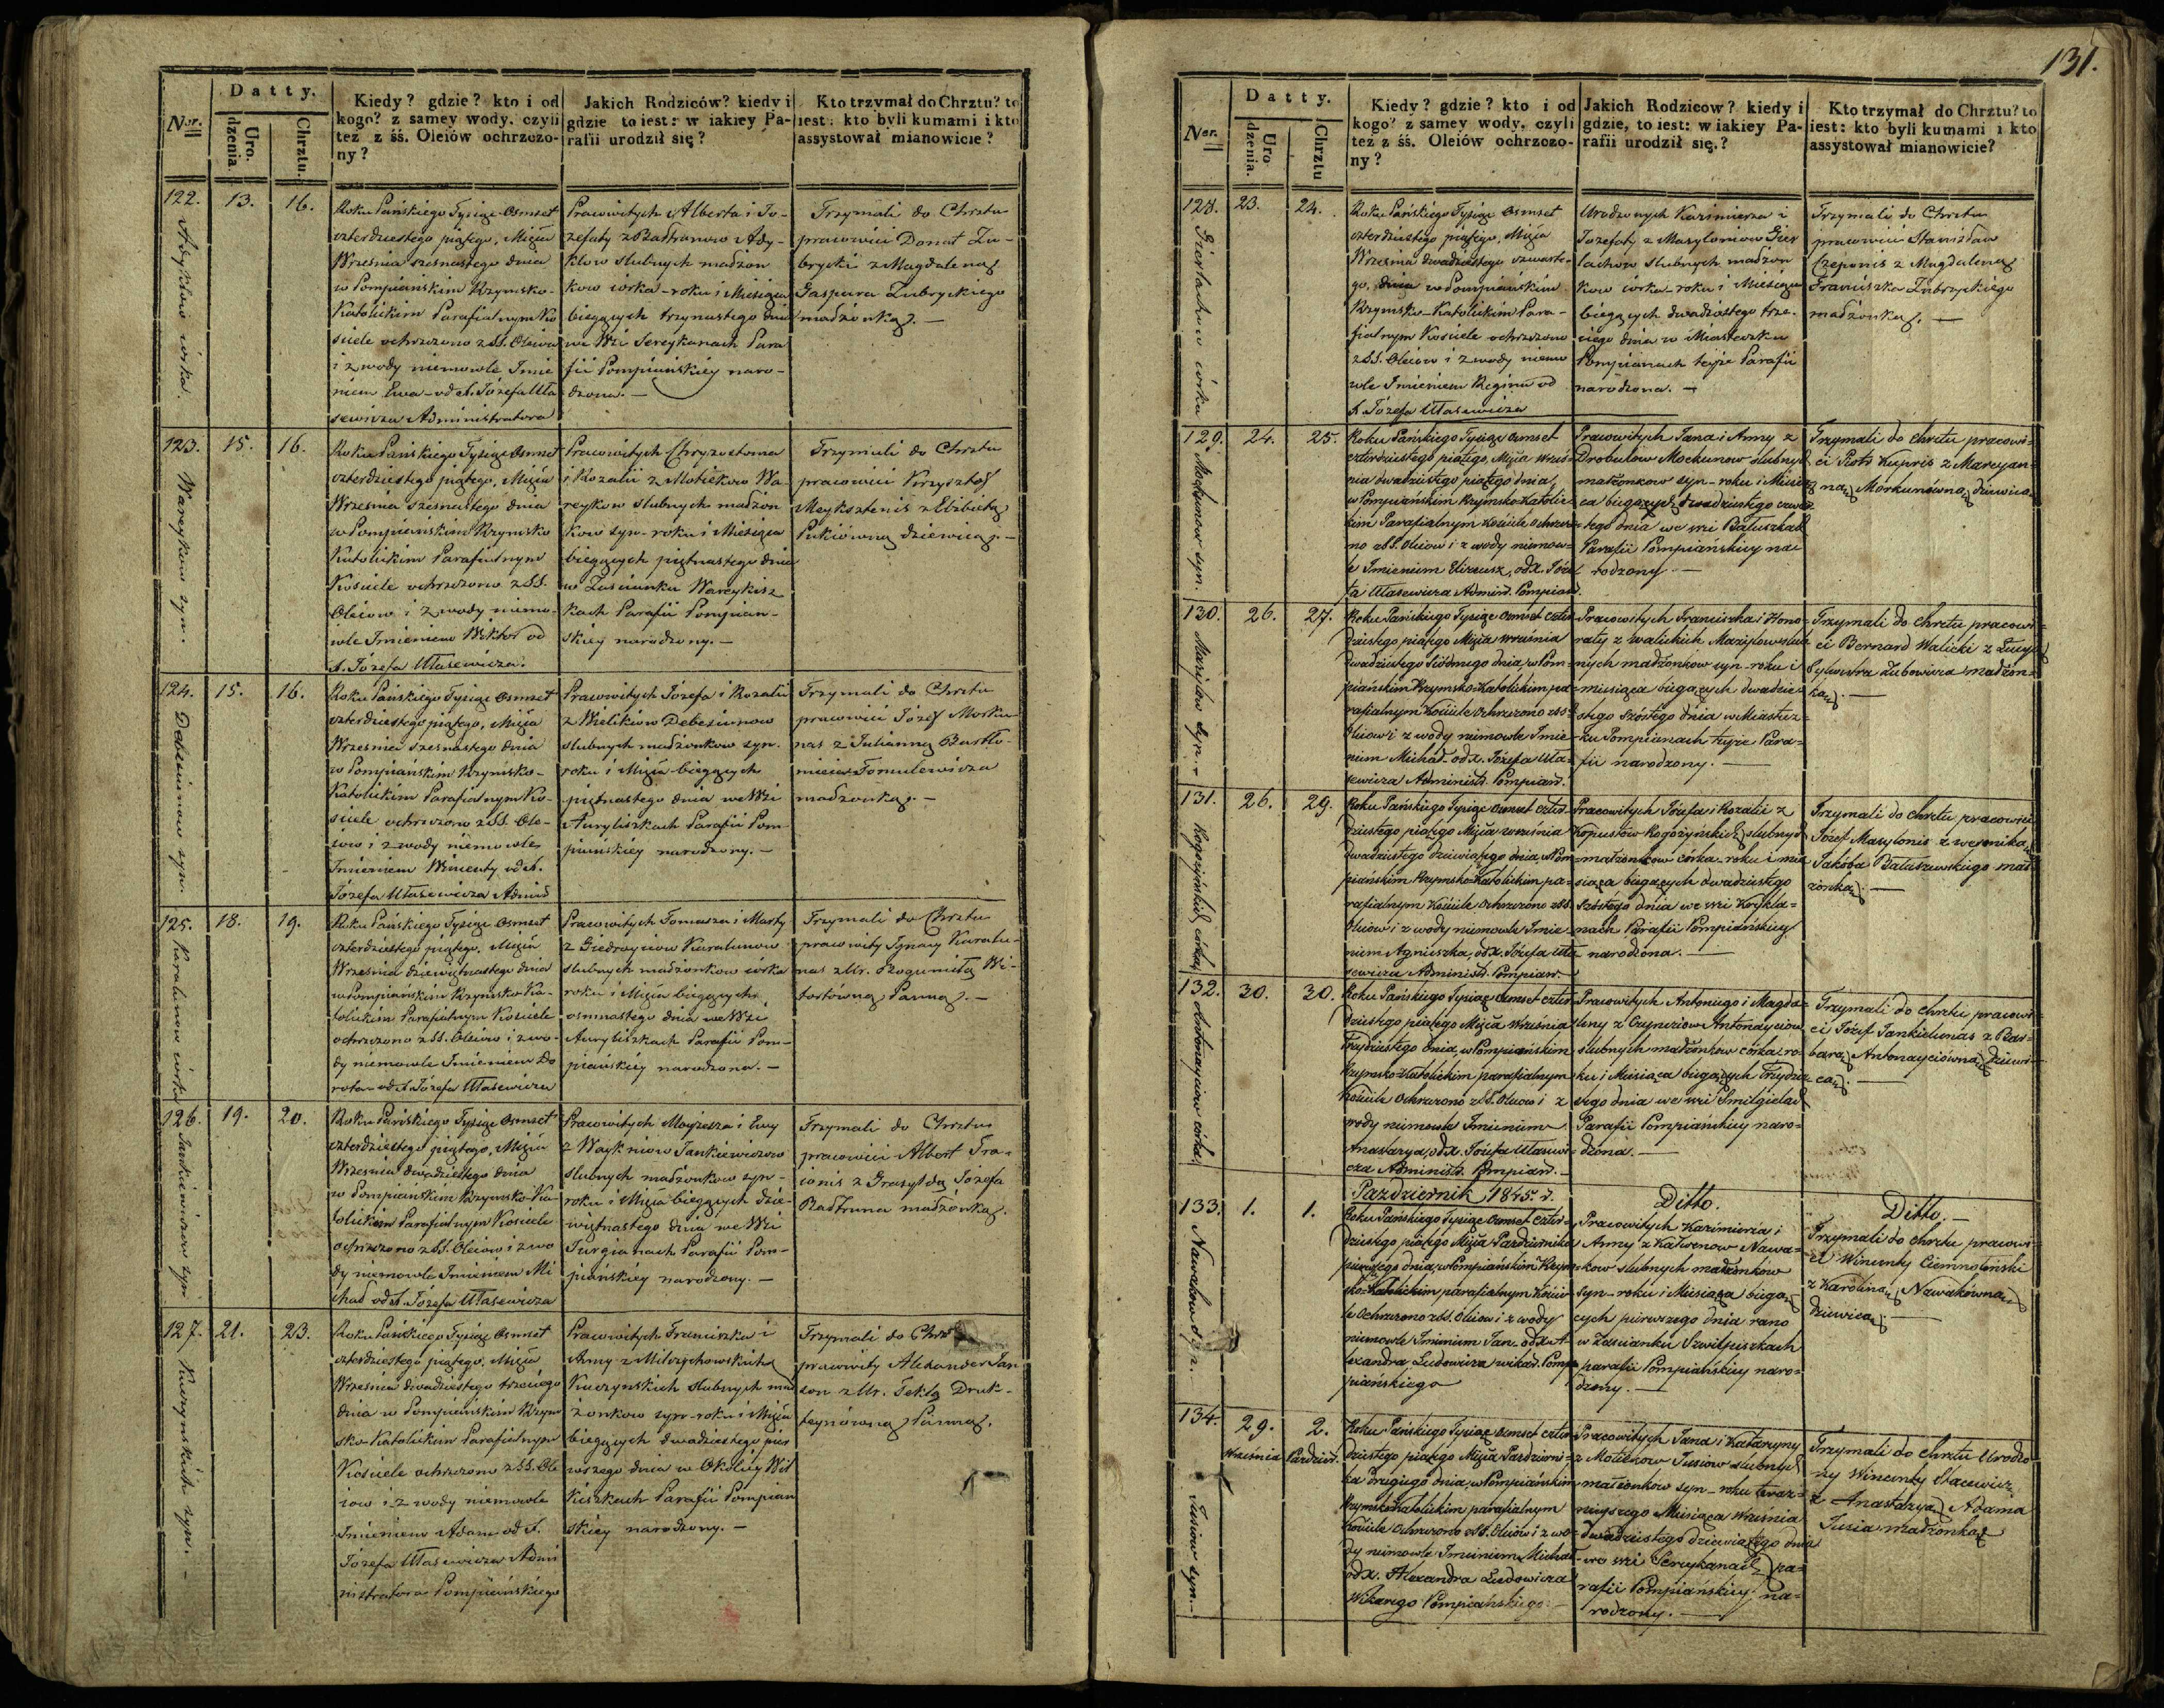 131.
Datty.
Ner.
Uro-
dzenia.
Chrztu.
Kiedy? gdzie? kto i od
kogo? z samey wody, czyli
też z śś. Oleiów ochrzczo-
ny?
Jakich Rodziców? kiedy i
gdzie to iest: w iakiey Pa-
rafii urodził się?
Kto trzymał do Chrztu? to
iest: kto byli kumami i kto
assystował mianowicie?
122.
13.
16.
córka.
Roku Pańskiego Tysiąc Osmset
czterdziestego piątego, Miąca
Września szesnastego dnia
w Pompiańskim Rzymsko-
Katolickim Parafialnym Ko
ściele ochrzczono z SS. Oleiów
i z wody niemowle Imie
niem Ewa - od X. Józefa Uła
sewicza Administratora
Pracowitych Alberta i Jo-
zefaty z Badtrunow Ady-
klow slubnych małżon
kow córka - roku i Miesiąca
biegących trzynastego dnia
we Wsi Sereykanach Para
fii Pompiańskiey naro-
dzona. -
Trzymali do Chrztu
pracowici Donat Zu-
brycki z Magdaleną
Gaspara Zubryckiego
małżonką. -
123.
15.
16.
Wareykow syn.
Roku Pańskiego Tysiąc Osmset
czterdziestego piątego, Miąca
Września szesnastego dnia
w Pompiańskim Rzymsko
Katolickim Parafialnym
Kościele ochrzczono z SS.
Oleiow i z wody niemo-
wle Imieniem Wiktor od
X. Józefa Ułasewicza.
Pracowitych Chryzostoma
i Rozalii z Motiekow Wa-
reykow slubnych małżon
kow syn - roku i Miesiąca
biegących piętnastego dnia
w Zaścianku Wareykisz
kach Parafii Pompian-
skiey narodzony. -
Trzymali do Chrztu
pracowici Krzysztof
Meyksztenis z Elżbietą
Pukiówną dziewicą. -
124.
15.
16.
Debesiunow syn.
Roku Pańskiego Tysiąc Osmset
czterdziestego piątego, Miąca
Września szesnastego dnia
w Pompiańskim Rzymsko-
Katolickim Parafialnym Ko-
ściele ochrzczono z SS. Ole-
iow i z wody niemowle
Imieniem Wincenty od X.
Józefa Ułasewicza Admini
Pracowitych Józefa i Rozalii
z Wielikiow Debesiunow
slubnych małżonkow syn -
roku i Miąca biegących
piętnastego dnia we Wsi
Auryliszkach Parafii Pom-
piańskiey narodzony. -
Trzymali do Chrztu
pracowici Józef Morku-
nas z Julianną Bartło-
mieia Tomulewicza
małżonką. -
125.
18.
19.
Karalunow córka
Roku Pańskiego Tysiąc Osmset
czterdziestego piątego, Miąca
Września dziewiętnastego dnia
w Pompiańskim Rzymsko-Ka-
tolickim Parafialnym Kościele
ochrzczono z SS. Oleiow i z wo-
dy niemowle Imieniem Do
rota - od X. Józefa Ułasewicza
Pracowitych Tomasza i Marty
z Giedroyciow Karalunow
slubnych małżonkow córka
roku i Miąca biegących
osmnastego dnia we Wsi
Auryliszkach Parafii Pom-
piańskiey narodzona. -
Trzymali do Chrztu
pracowity Ignacy Karalu-
nas z Ur. Bogumiłą Wi-
tortówną Panną. -
126.
19.
20.
Jankiewiczow syn
Roku Pańskiego Tysiąc Osmset
czterdziestego piątego, Miąca
Września dwudziestego dnia
w Pompiańskim Rzymsko-Ka-
tolickim Parafialnym Kościele
ochrzczono z SS. Oleiow i z wo
dy niemowle Imieniem Mi
chał od X. Józefa Ułasewicza
Pracowitych Moyżesza i Ewy
z Wayknisow Jankiewiczow
slubnych małżonkow syn -
roku i Miąca biegących dzie-
więtnastego dnia we Wsi
Jurgianach Parafii Pom-
piańskiey narodzony. -
Trzymali do Chrztu
pracowici Albert Gra-
ionis z Grasyldą Józefa
Badtruna małżonką.
127.
21.
23.
Kuczynskich syn. -
Roku Pańskiego Tysiąc Osmset
czterdziestego piątego, Miąca
Września dwadziestego trzeciego
dnia w Pompiańskim Rzym
sko-Katolickim Parafialnym
Kościele ochrzczono z SS. Ole
iow i z wody niemowle
Imieniem Adam od X.
Józefa Ułasewicza Admi
nistratora Pompiańskiego
Pracowitych Franciszka i
Anny z Milczychowskich
Kuczynskich slubnych mał
żonkow syn - roku i Miąca
biegących dwadziestego pier
wszego dnia w Okolicy Wił
kiszkach Parafii Pompian
skiey narodzony. -
Trzymali do Chrz
pracowity Alexander Jan
son z Ur. Teklą Druk-
teynówną Panną.
Datty.
Ner.
Uro-
dzenia.
Chrztu
Kiedy? gdzie? kto i od
kogo? z samey wody, czyli
też z śś. Oleiów ochrzczo-
ny?
Jakich Rodziców? kiedy i
gdzie, to iest: w iakiey Pa-
rafii urodził się.?
Kto trzymał do Chrztu? to
iest: kto byli kumami i kto
assystował mianowicie?
128.
23.
24.
Gierlachow córka
Roku Pańskiego Tysiąc Osmset
czterdziestego piątego, Miąca
Września dwadziestego czwarte-
go dnia w Pompiańskim
Rzymsko-Katolickim Para-
fialnym Kościele ochrzczono
z SS. Oleiow i z wody niemo
wle Imieniem Regina od
X. Józefa Ułasewicza
Urodzonych Kazimierza i
Jozefaty z Masyloniow Gier
lachów slubnych małżon
kow córka - roku i Miesiąca
biegących dwadziestego trze-
ciego dnia w Miasteczku
Pompianach teyże Parafii
narodzona. -
Trzymali do Chrztu
pracowici Stanisław
Czeponis z Magdaleną
Franciszka Zubryckiego
małżonką. -
129.
24.
25.
Mockunow syn.
Roku Pańskiego Tysiąc Osmset
czterdziestego piątego, Miąca Wrześ-
nia dwadziestego piątego dnia,
w Pompiańskim Rzymsko-Katolic-
kim Parafialnym Kościele Ochrzczo-
no z SS. Oleiow i z wody niemow-
le Imieniem Elizeusz, od X. Józe-
fa Ułasewicza Admin. Pompian.
Pracowitych Jana i Anny z
Drobulow Mockunow slubnych
małżonkow syn - roku i Miesią-
ca biegących dwadziestego czwar-
tego dnia we wsi Bałuszkach
Parafii Pompiańskiey na-
rodzony. -
Trzymali do chrztu pracowi-
ci Piotr Kupris z Marcyan-
ną Morkunówną dziewicą
130.
26.
27.
Mazylow syn. -
Roku Pańskiego Tysiąc Osmset czter-
dziestego piątego Miąca Września
dwadziestego siódmego dnia, w Pom-
piańskim Rzymsko-Katolickim pa-
rafialnym Kościele Ochrzczono z SS.
Oleiow i z wody niemowle Imie-
niem Michał - od X. Józefa Uła-
sewicza Administ. Pompian.
Pracowitych Franciszka i Hono-
raty z Walickich Mazylow slub-
nych małżonkow syn - roku i
miesiąca biegących dwadzie-
stego szóstego dnia w Miastecz-
ku Pompianach teyże Para-
fii narodzony. -
Trzymali do chrztu pracowi-
ci Bernard Walicki z Łucyą
Sylwestra Zubowicza małżon-
ką. -
131.
26.
29.
Rogożyńskich córka
Roku Pańskiego Tysiąc Osmset czter-
dziestego piątego Miąca Września
dwadziestego dziewiątego dnia, w Pom-
piańskim Rzymsko-Katolickim pa-
rafialnym Kościele Ochrzczono z SS.
Oleiow i z wody niemowle Imie-
niem Agnieszka, od X. Józefa Uła-
sewicza Administ. Pompian.
Pracowitych Józefa i Rozalii z
Kopustow Rogożyńskich slubnych
małżonkow córka - roku i mie-
siąca biegących dwadziestego
szóstego dnia we wsi Korykla-
nach Parafii Pompiańskiey
narodzona. -
Trzymali do chrztu pracowici
Józef Masylonis z Weroniką
Jakóba Bałuszewskiego mał-
żonką. -
132.
30.
30.
Antonayciow córka
Roku Pańskiego Tysiąc Osmset czter-
dziestego piątego Miąca Września
Trzydziestego dnia, w Pompiańskim
Rzymsko-Katolickim parafialnym
Kościele Ochrzczono z SS. Oleiow i z
wody niemowle Imieniem
Anastazya, od X. Józefa Ułasewi-
cza Administ. Pompian. -
Pracowitych Antoniego i Magda-
leny z Antonayciow
slubnych małżonkow córka - ro-
ku i Miesiąca biegących Trzydzie-
stego dnia we wsi Smilgielach
Parafii Pompiańskiey naro-
dzona. -
Trzymali do chrztu pracowi-
ci Józef Jankielunas z Bar-
barą Antonayciówną dziewi-
cą. -
Październik 1845. r.
Ditto.
Ditto. -
133.
1.
1.
Nawakow syn.
Roku Pańskiego Tysiąc Osmset czter-
dziestego piątego Miąca Października
pierwszego dnia, w Pompiańskim Rzym-
sko-Katolickim parafialnym Koście-
le Ochrzczono z SS. Oleiow i z wody
niemowle Imieniem Jan - od X. A-
lexandra Ludowicza wikar. Pom-
piańskiego
Pracowitych Kazimierza i
Anny z Katwenow Nawa-
kow slubnych małżonkow
syn - roku i Miesiąca biegą-
cych pierwszego dnia rano
w Zaścianku Szwilpiszkach
parafii Pompiańskiey naro-
dzony. -
Trzymali do chrztu pracowi-
ci Wincenty Ciemnołoński
z Karoliną Nawakówną
dziewicą. -
134.
29.
Września
2.
Paździer.
Tusiow syn. -
Roku Pańskiego Tysiąc Osmset czter-
dziestego piątego Miąca Październi-
ka Drugiego dnia, w Pompiańskim
Rzymsko-Katolickim parafialnym
Kościele Ochrzczono z SS. Oleiow i z wo-
dy niemowle Imieniem Michał
od X. Alexandra Ludowicza
Wikarego Pompiańskiego: -
Pracowitych Jana i Katarzyny
z Motienow Tusiow slubnych
małżonkow syn - roku teraz-
nieyszego Miesiąca Września
Dwadziestego dziewiątego dnia
we wsi Sereykanach pa-
rafii Pompiańskiey na-
rodzony. -
Trzymali do chrztu Urodzo-
ny Wincenty Stacewicz
z Anastazyą Adama
Tusia małżonką